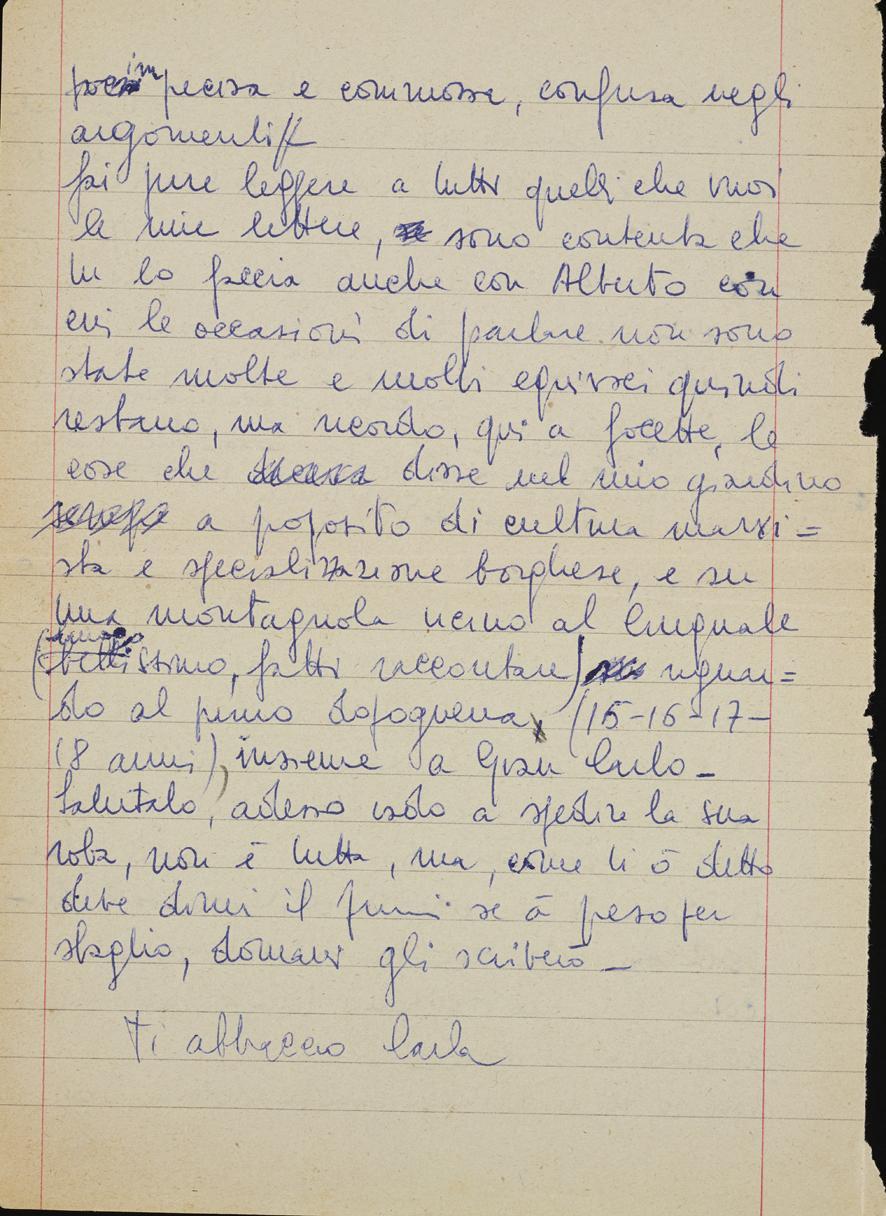 imprecisa e commossa, confusa negli
argomenti
fai pure leggere a tutti quelli che vuoi
le mie lettere, sono contenta che
tu lo faccia anche con Alberto con
cui le occasioni di parlare non sono
state molte e molti equivoci quindi
restano, ma ricordo, qui a focette, le
cose che disse nel mio giardino
a proposito di cultura marxi=
sta e specializzazione borghese, e su
una montagnola vicino al Cinquale
(bellissimo, fatti raccontare) riguar=
do al primo dopoguerra, (15-16-17-
18 anni), insieme a Gian Carlo_
Salutalo, adesso vado a spedire la sua
roba, non è tutta, ma, come ti ò detto
deve dirmi il se à preso per
sbaglio, domani gli scriverò_
Ti abbraccio Carla